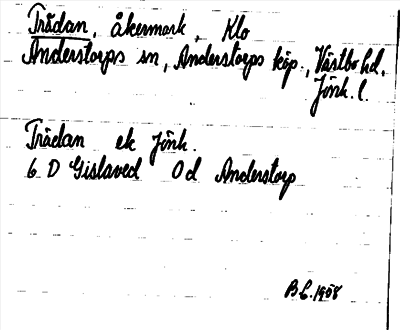 Trådan, åkermark, Klo
Anderstorps sn, Anderstorps köp., Västbo hd.
Jönk. l.
Trådan ek Jönk.
6 D Gislaved 0 d Anderstorp